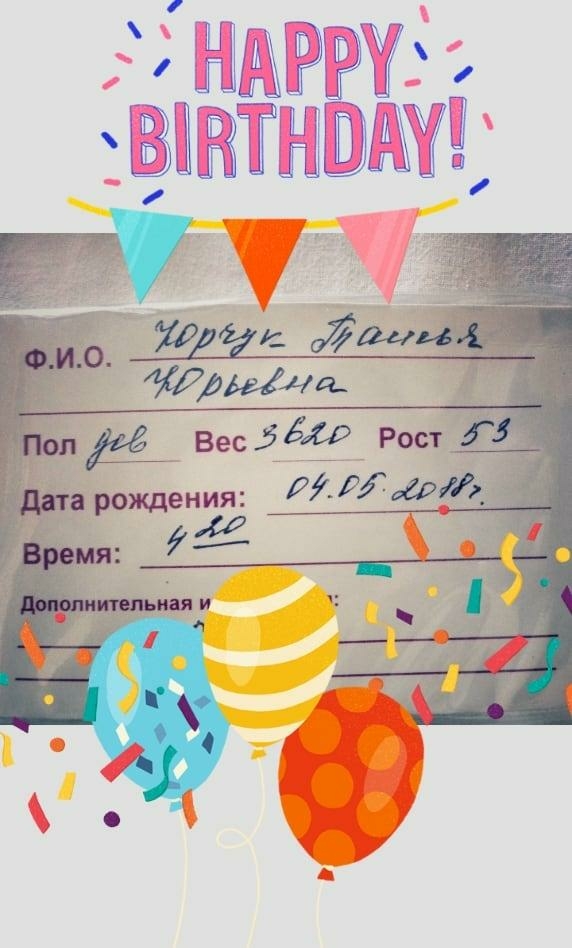 HAPPY
BIRTHDAY!
Ф.И.О. Юрчук Татья
Юрьевна
Пол дев Вес 3620 Рост 53
Дата рождения: 04.05.2018г.
Время: 4 20
Дополнительная